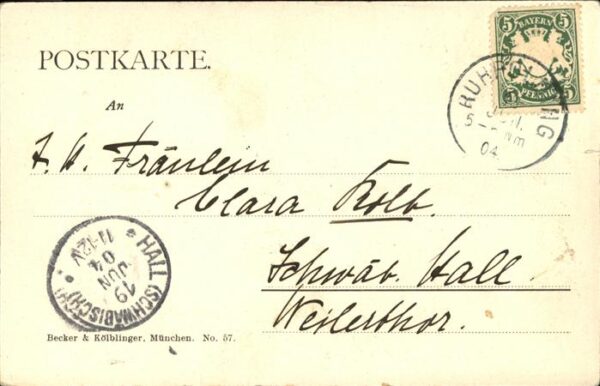 POSTKARTE.
An
Fräulein
Clara Kolb.
Schwäb. Hall
Weilerthor.
5 BAYERN 5
5 PFENNIG 5
JUN.
04
HALL (SCHWÄBISCH)
19
JUN
04
11-12V
Becker & Kölblinger, München. No. 57.